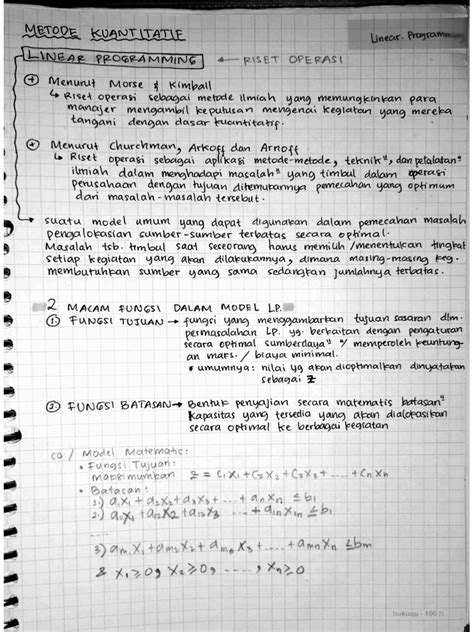 METODE KUANTITATIF
Linear. Programming
LINEAR PROGRAMMING ← RISET OPERASI
Menurut Morse & Kimball
↳ Riset operasi sebagai metode ilmiah yang memungkinkan para
manajer mengambil keputusan mengenai kegiatan yang mereka
tangani dengan dasar kuantitatif.
Menurut Churckman, Arkoff dan Arnoff
↳ Riset operasi sebagai aplikasi metode-metode, teknik", dan peralatan"
ilmiah dalam menghadapi masalah" yang timbul dalam operasi
perusahaan dengan tujuan ditemukannya pemecahan yang optimum
dari masalah-masalah tersebut.
suatu model umum yang dapat digunakan dalam pemecahan masalah
pengalokasian sumber-sumber terbatas secara optimal.
Masalah tsb. timbul saat seseorang harus memilih /menentukan tingkat
setiap kegiatan yang akan dilakukannya, dimana masing-masing keg.
membutuhkan sumber yang sama sedangkan jumlahnya terbatas.
2 MACAM FUNGSI DALAM MODEL LP.
① FUNGSI TUJUAN → fungsi yang menggambarkan tujuan sasaran dlm.
permasalahan LP. yg. berkaitan dengan pengaturan
secara optimal sumberdaya" u/ memperoleh keuntung-
an maks. / biaya minimal.
• umumnya: nilai yg akan dioptimalkan dinyatakan
sebagai Z
② FUNGSI BATASAN → Bentuk penyajian secara matematis batasan"
kapasitas yang tersedia yang akan dialokasikan
secara optimal ke berbagai kegiatan
/ Model Matematis:
• Fungsi Tujuan:
maksimumkan Z = C1X1 + C2X2 + C3X3 + .... + CnXn
• Batasan:
1.) a1X1 + a2X2 + a3X3 + .... + anXn ≤ b1
2.)
....
3)
& X1 ≥ 0, X2 ≥ 0, ...., Xn ≥ 0